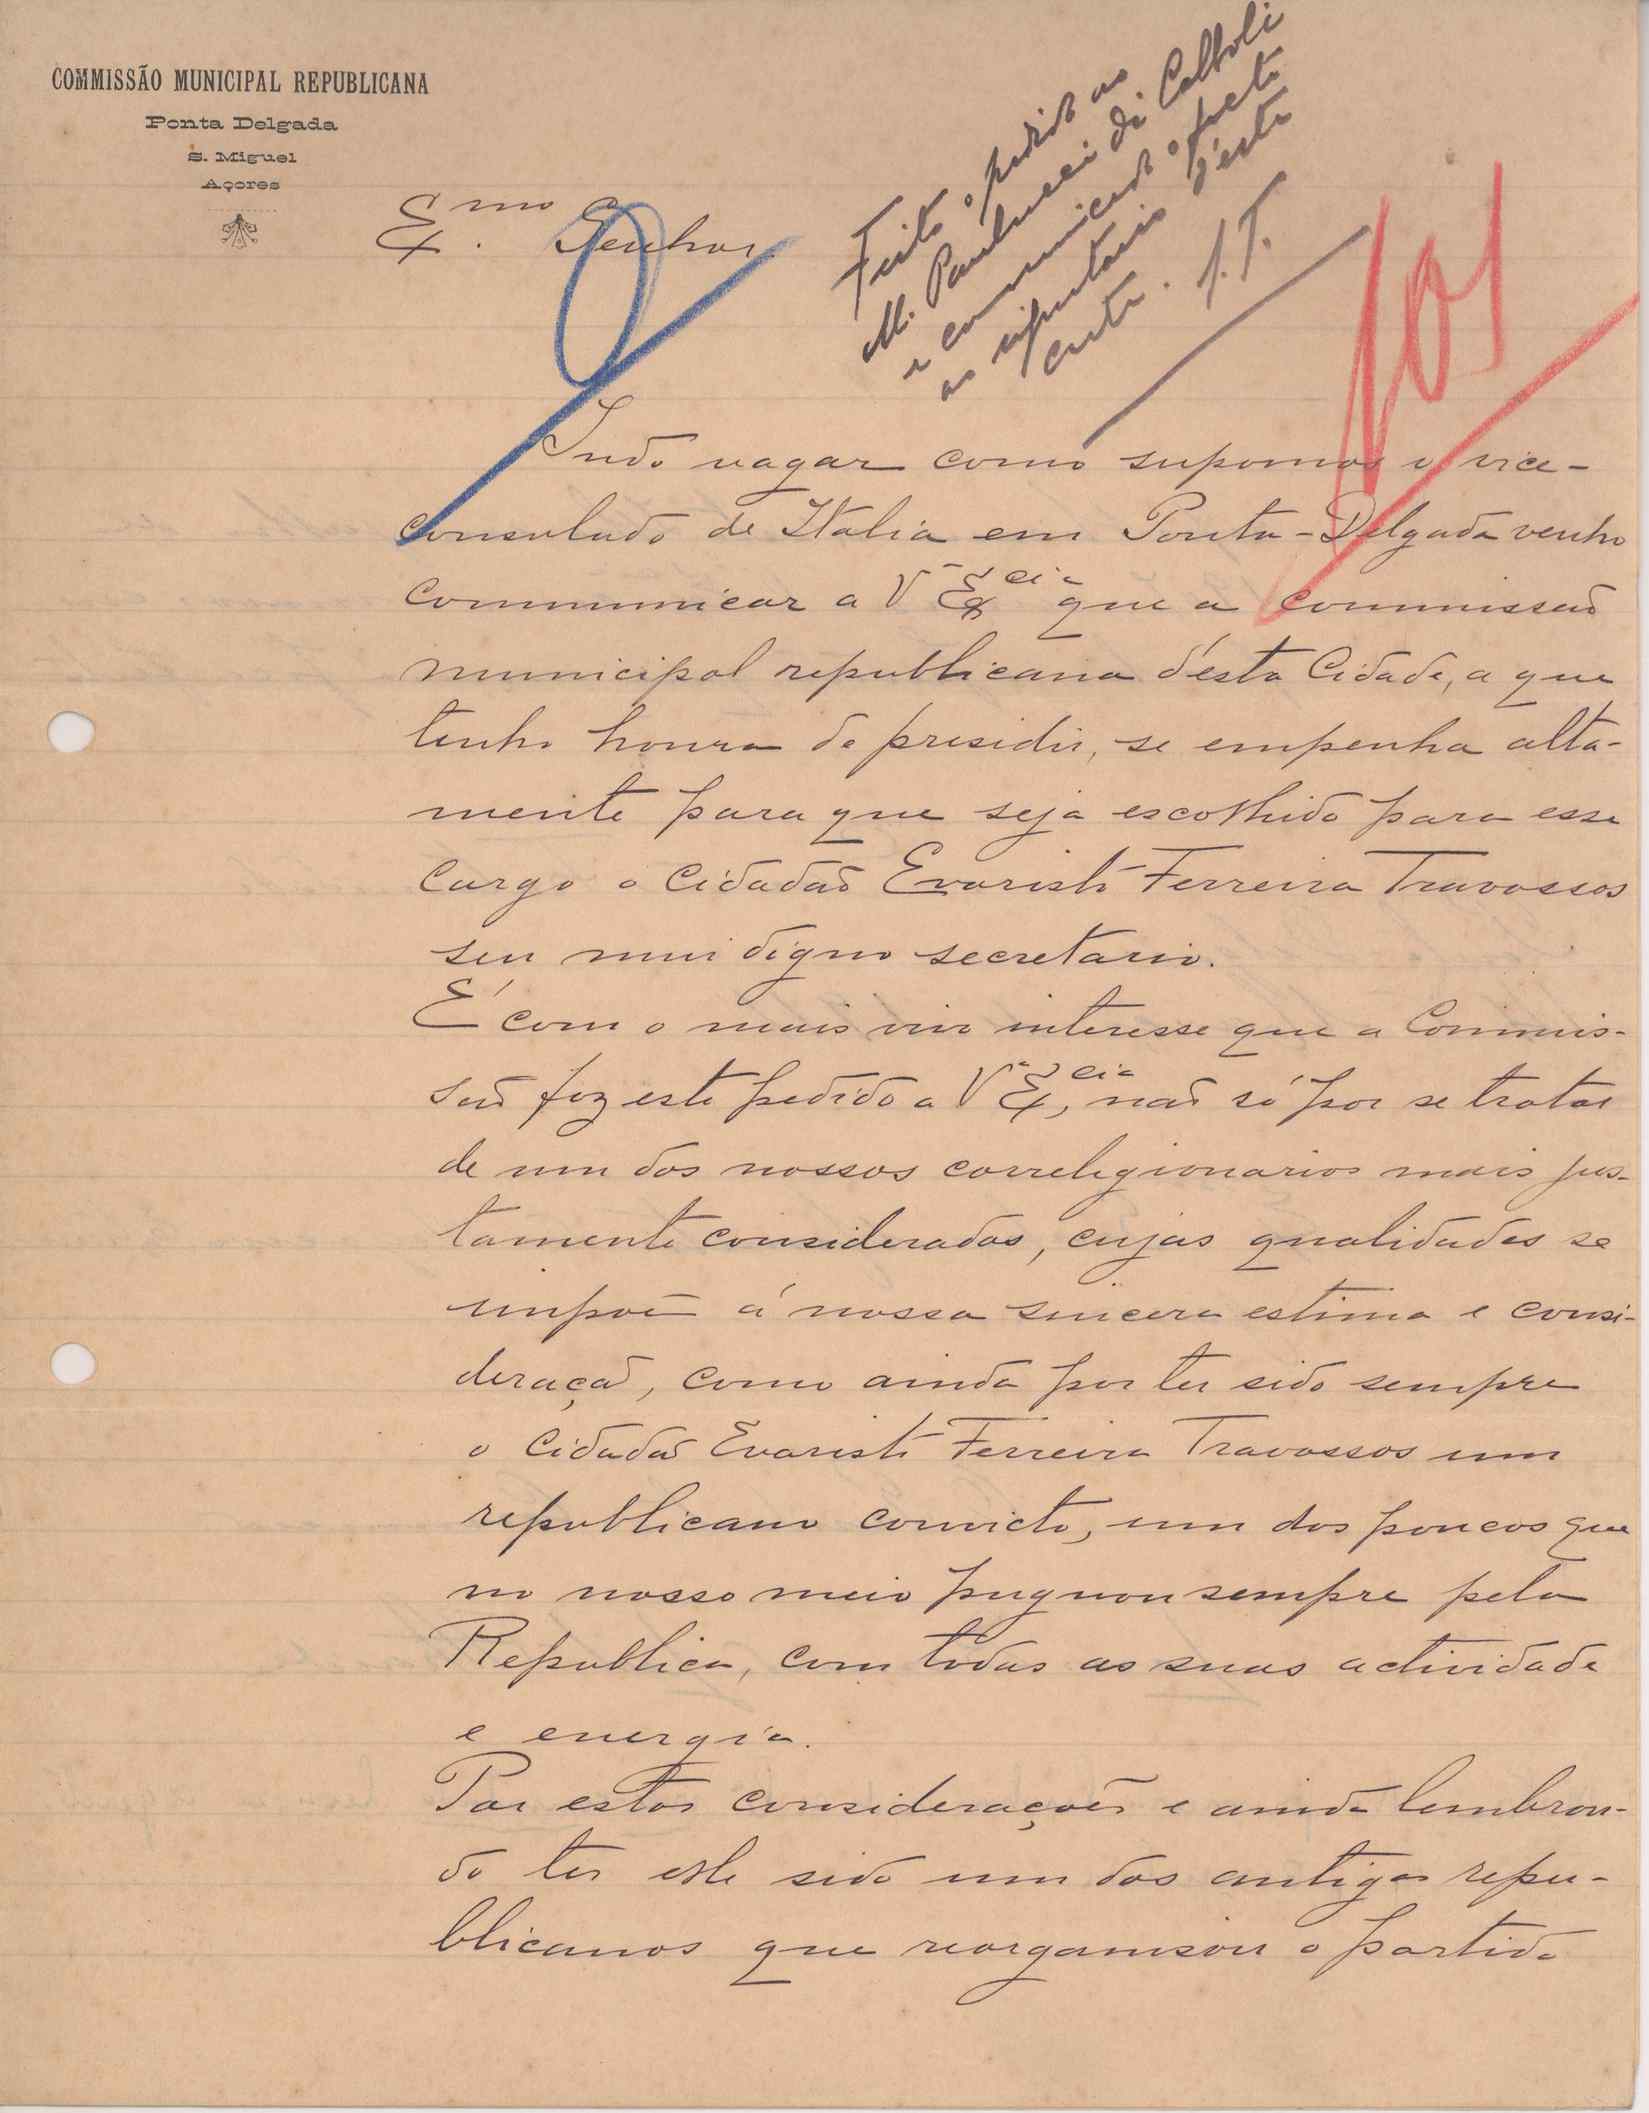 COMMISSÃO MUNICIPAL REPUBLICANA
Ponta Delgada
S. Miguel
Açores
Feito o pedido ao
M. Paulucci di Calboli
e communicado o facto
ao signatario d'esta
carta.
Ex.mo Senhor
Indo vagar como supomos o vice-
consulado de Italia em Ponta-Delgada venho
communicar a Vª Excia que a commissão
municipal republicana d'esta Cidade, a que
tenho honra de presidir, se empenha alta-
mente para que seja escolhido para esse
cargo o cidadão Evaristo Ferreira Travassos
seu mui digno secretario.
É com o mais vivo interesse que a Commis-
são faz este pedido a Vª Excia, não só por se tratar
de um dos nossos correligionarios mais jus-
tamente considerados, cujas qualidades se
impõe á nossa sincera estima e consi-
deração, como ainda por ter sido sempre
o cidadão Evaristo Ferreira Travassos um
republicano convicto, um dos poucos que
no nosso meio pugnou sempre pela
Republica, com todas as suas actividade
e energia.
Por estas considerações e ainda lembran-
do ter elle sido um dos antigos repu-
blicanos que reorganisou o partido